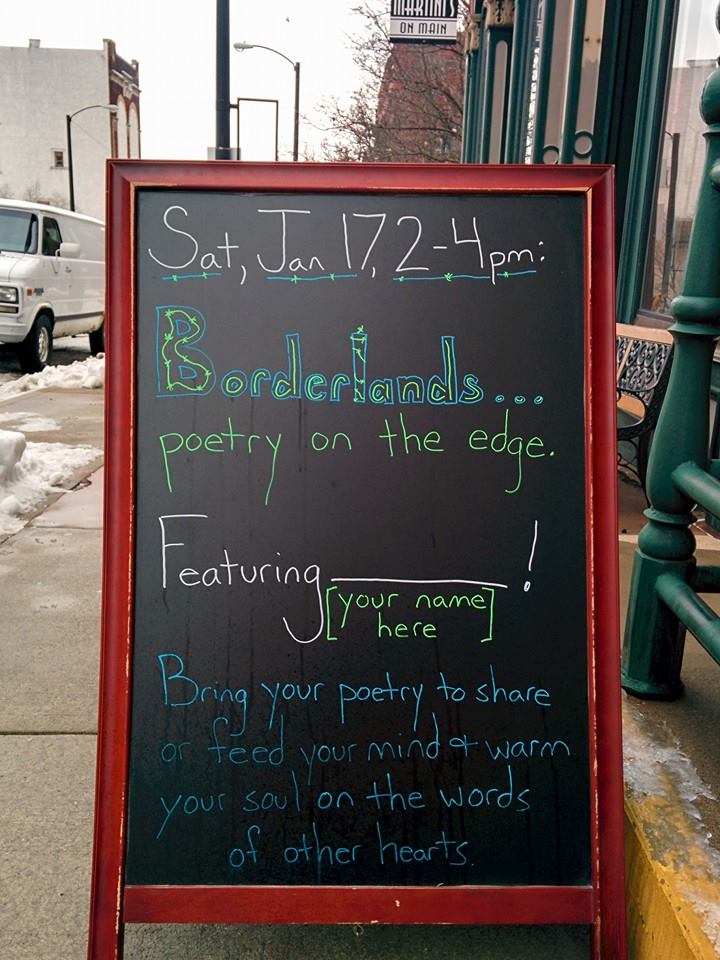 MARTINI'S
ON MAIN
Sat, Jan 17, 2-4pm:
Borderlands...
poetry on the edge.
Featuring __________!
[your name
here]
Bring your poetry to share
or feed your mind & warm
your soul on the words
of other hearts.